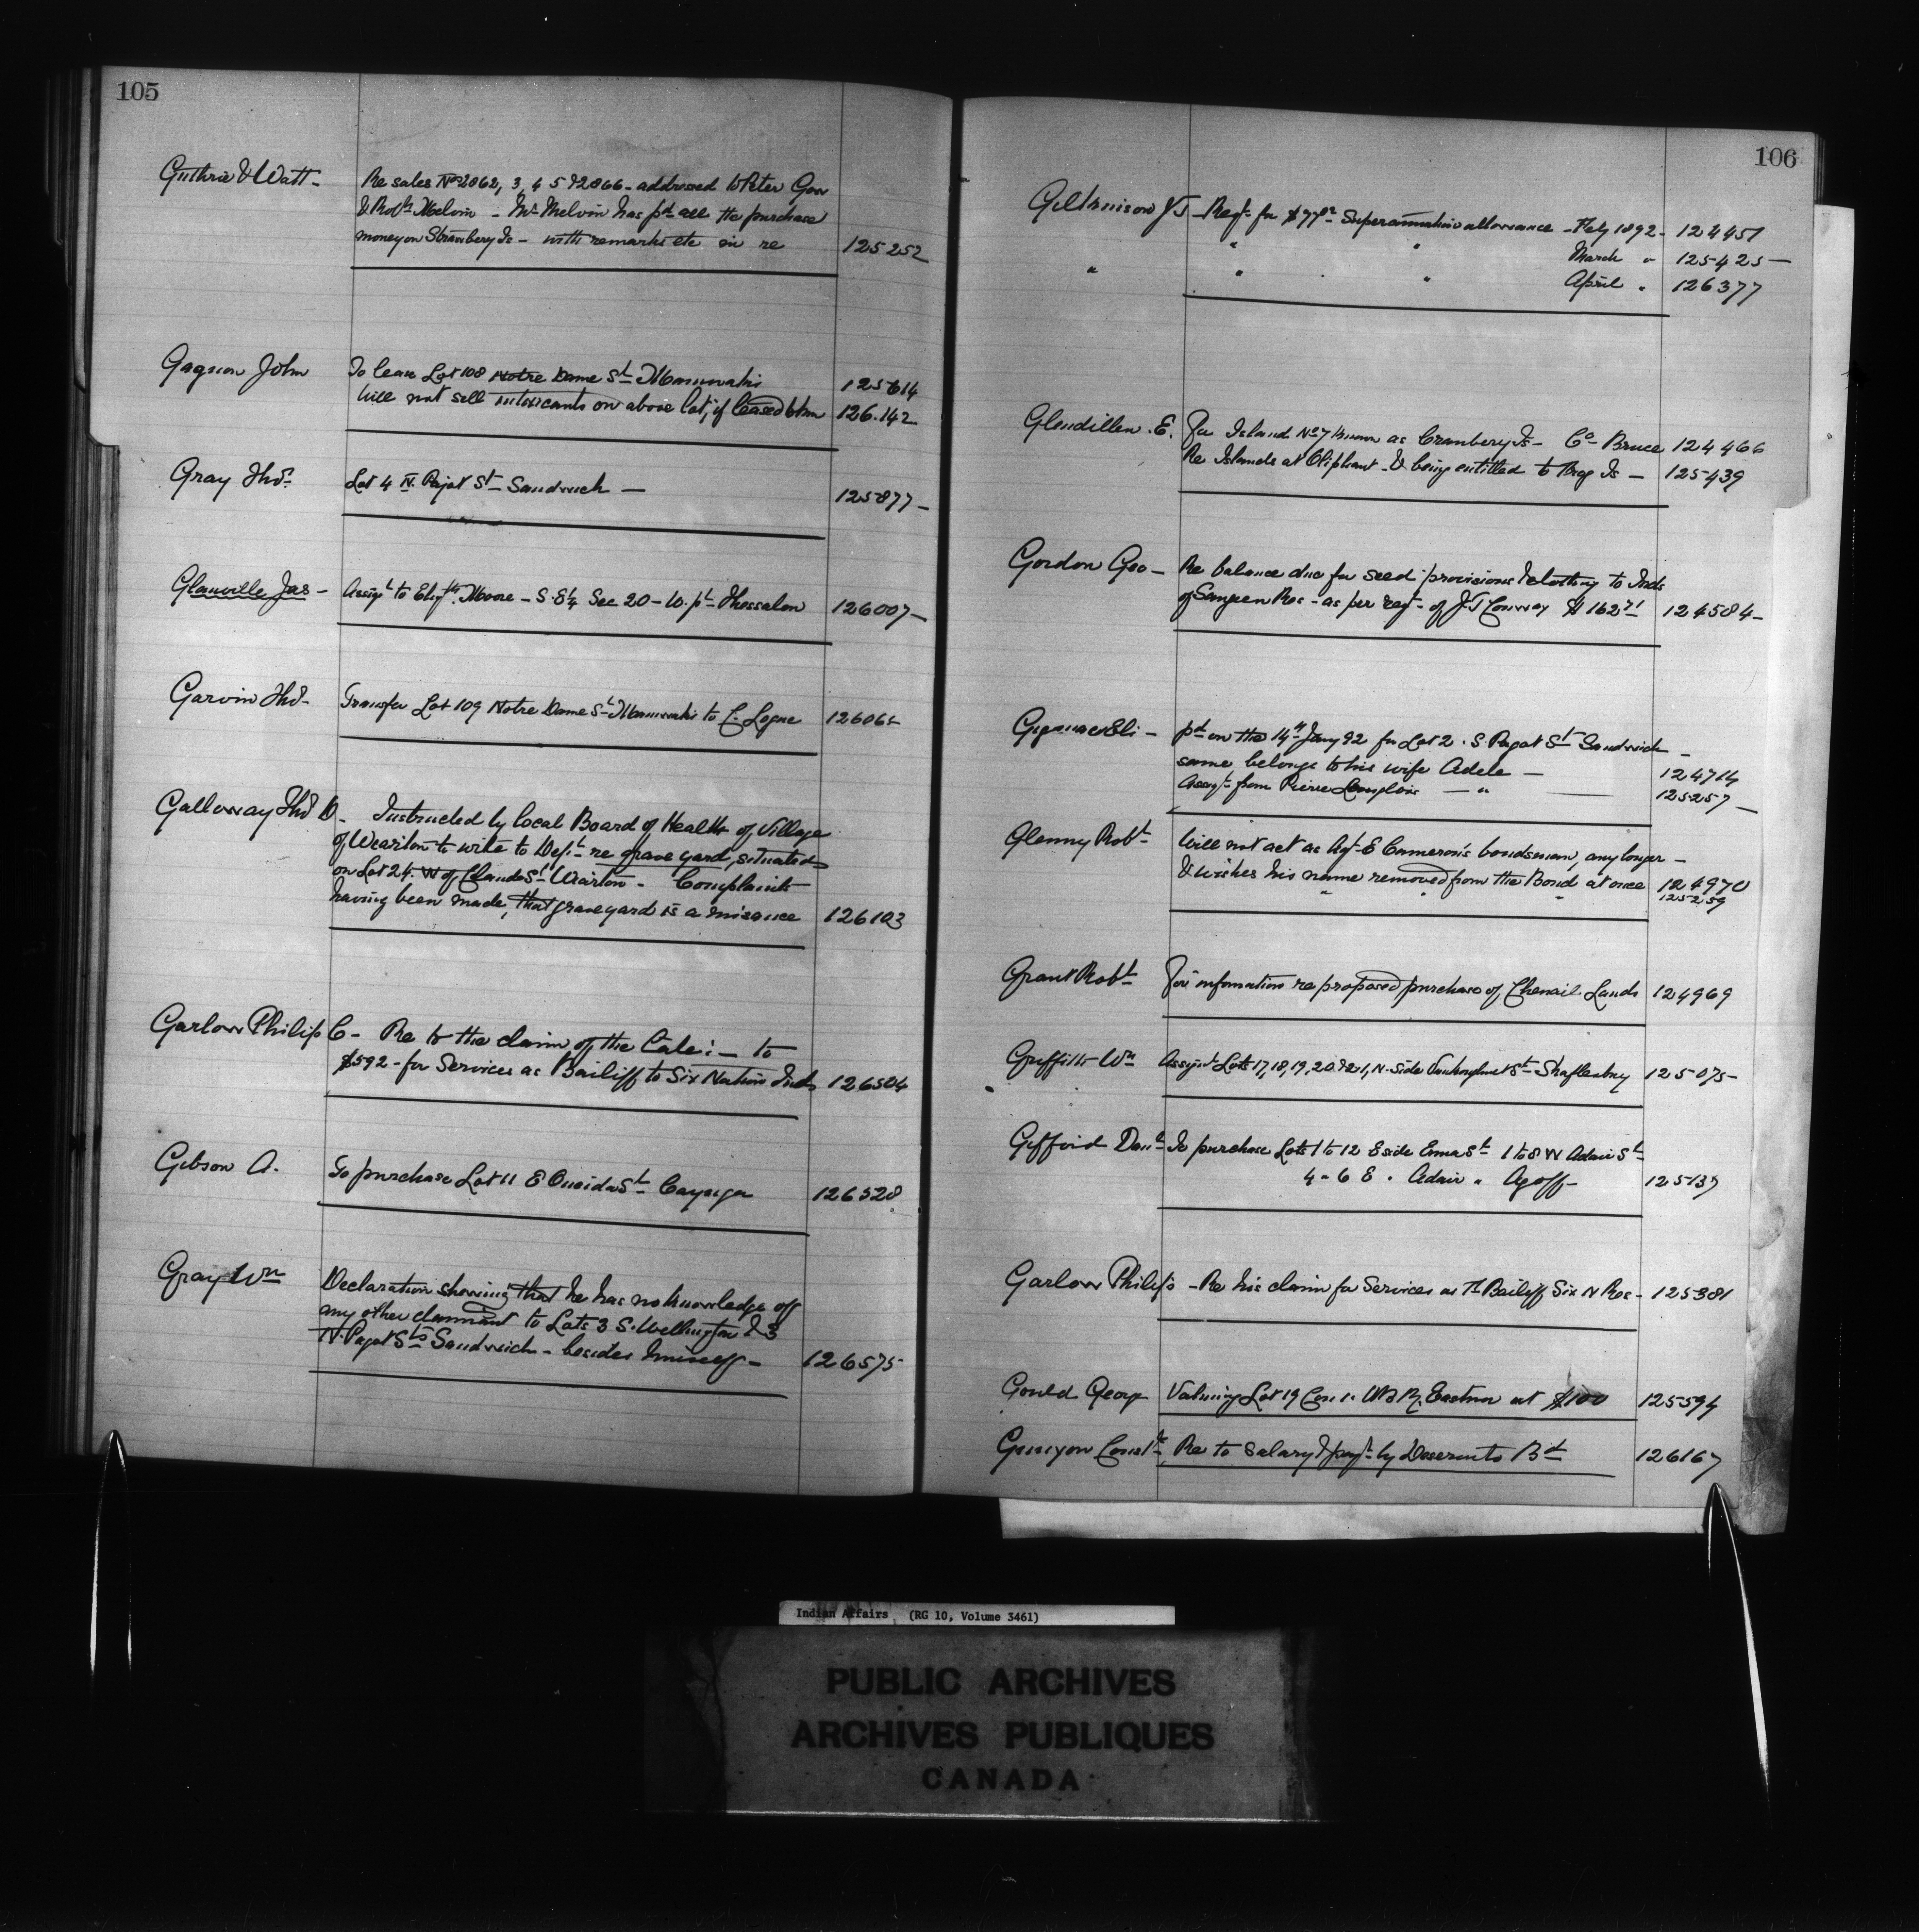 105
Guthrie & Watt - Re sales Nos 2862, 3, 4 5 & 2866 - addressed to Peter Gow
& Robt Melvin - Mr Melvin has pd all the purchase
money on Strawbery Is - with remarks etc in re 125252
Gagnon John To lease Lot 108 Notre Dame St Maniwaki 125614
Will not sell intoxicants on above lot, if leased to him 126.142
Gray Thos Lot 4 N. Pajot St Sandwich - 125877 -
Glanville Jas - Assigt to Elizth Moore - S.E¼ Sec 20 - W. pt Thessalon 126007 -
Garvin Thos Transfer Lot 109 Notre Dame St Maniwaki to C. Logue 126065
Galloway Thos D. Instructed by local Board of Health of Village
of Wiarton to write to Dept re grave yard, situated
on Lot 24. W of Claude St Wiarton - Complaints
having been made, that graveyard is a nuisance 126103
Garlow Philip C - Re to the claim of the Cale: - to
$592 - for Services as Bailiff to Six Nation Inds 126504
Gibson A. To purchase Lot 11 E Oneida St Cayuga 126528
Gray Wm Declaration showing that he has no knowledge of
any other claimant to Lots 3 S. Wellington & 3
N. Pajot Sts Sandwich - besides himself - 126575
106
Gilkinson JT - Reqt for $77 Superannuation allowance - Feby 1892 - 124451
" " March " 125425 -
" " " April " 126377
Glendillen . E. For Island No 7 known as Cranbery Is - Co Bruce 124466
Re Islands at Oliphant - & being entitled to Frog Is - 125439
Gordon Geo - Re balance due for seed provisions & clothing to Inds
of Saugeen Res - as per reqt of J.T Conway $162 71 124584 -
Gignac Eli - pd on the 14th Jany 92 for Lot 2 . S Pajot St Sandwich -
same belongs to his wife Adele - 124714
Assigt from Pierre Langlois - " 125257 -
Glenny Robt Will not act as Agt E Cameron's bondsman, any longer -
& wishes his name removed from the Bond at once 124970
" " " 125259
Grant Robt For information re proposed purchase of Chenail Lands 124969
Griffith Wm Assigt Lots 17, 18, 19, 20 & 21, N. Side St Shaftesbury 125075 -
Gifford Danl To purchase Lots 1 to 12 E side Emma St 1 to 8 W Adair St
4 - 6 E . Adair " Agoff - 125137
Garlow Philip - Re his claim for Services as Bailiff Six N Res - 125381
Gould George Valuing Lot 19 Con 1. WBR. Eastnor at $100 125594
Gunyon Const Re to salary & payt by Deseronto Bd 126167
Indian Affairs (RG 10, Volume 3461)
PUBLIC ARCHIVES
ARCHIVES PUBLIQUES
CANADA